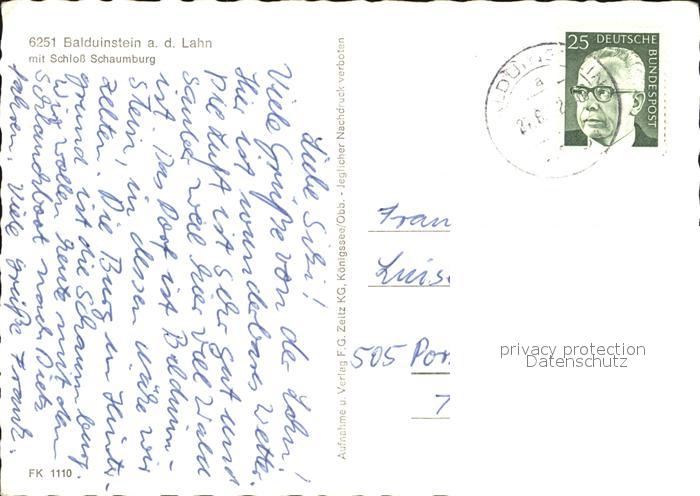 6251 Balduinstein a. d. Lahn
mit Schloß Schaumburg
Liebe Sibi!
Viele Grüße von der Lahn!
Hier ist wunderbares Wetter.
Die Luft ist sehr gut und
sauber, weil hier viel Wald
ist. Das Dorf ist Balduin-
stein, in dessen Nähe wir
zelten. Die Burg im Hinter-
grund ist die Schaumburg.
Wir wollen heute mit dem
Schlauchboot nach Dietz
fahren. Viele Grüße Frank.
FK 1110
Aufnahme u. Verlag F.G. Zeitz KG, Königssee/Obb. - Jeglicher Nachdruck verboten
25 DEUTSCHE
BUNDESPOST
Fran
Luis
505 Por
7
privacy protection
Datenschutz